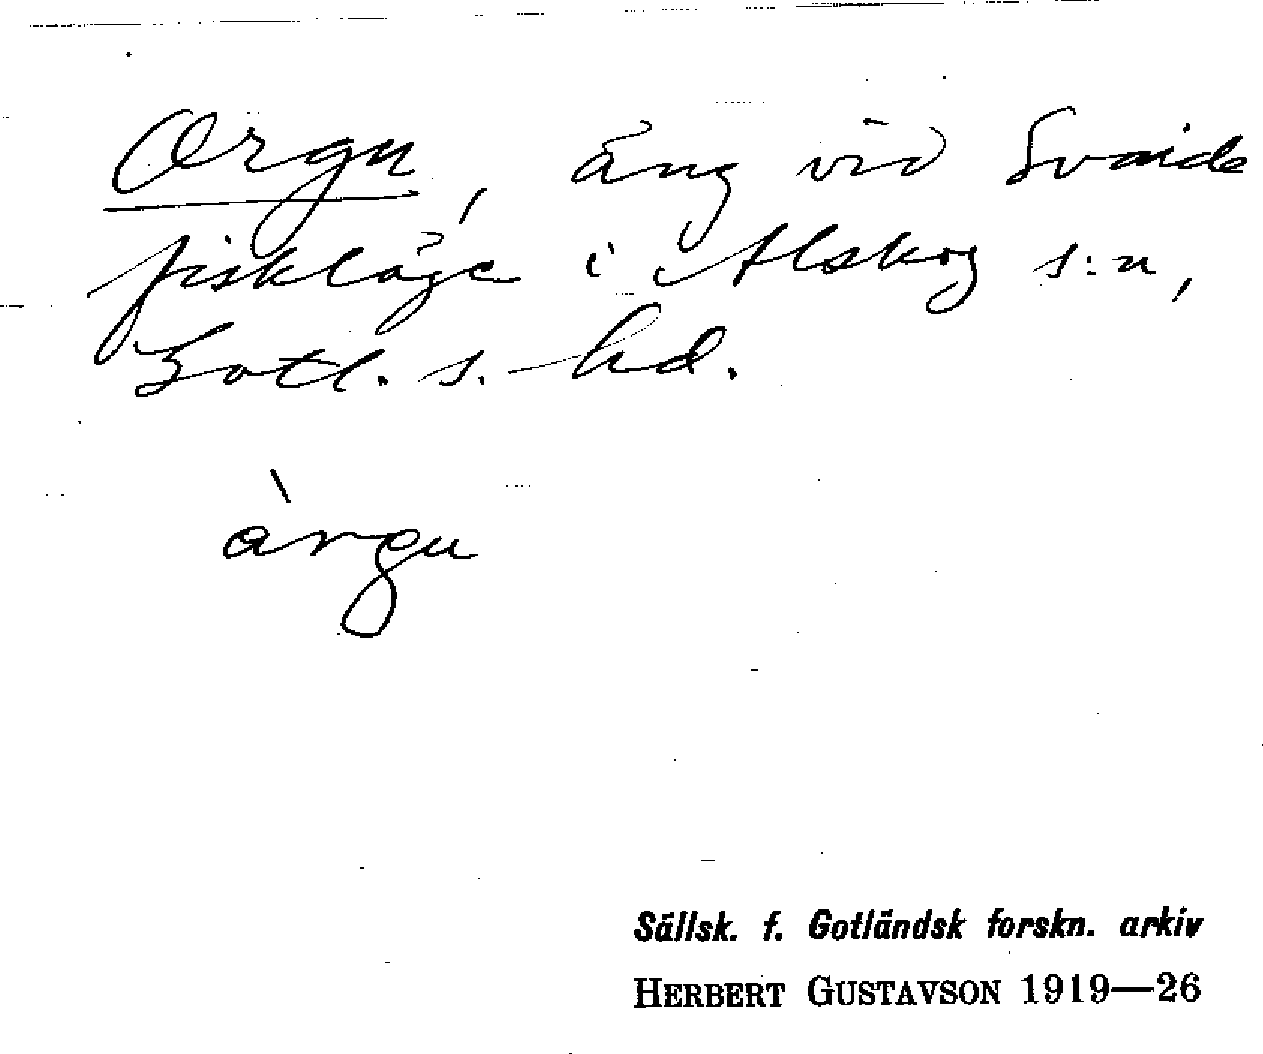 Orgu, äng vid Svaide
fiskläge i Alskog s:n,
Gotl. s. hd.
àrgu
Sällsk. f. Gotländsk forskn. arkiv
HERBERT GUSTAVSON 1919—26